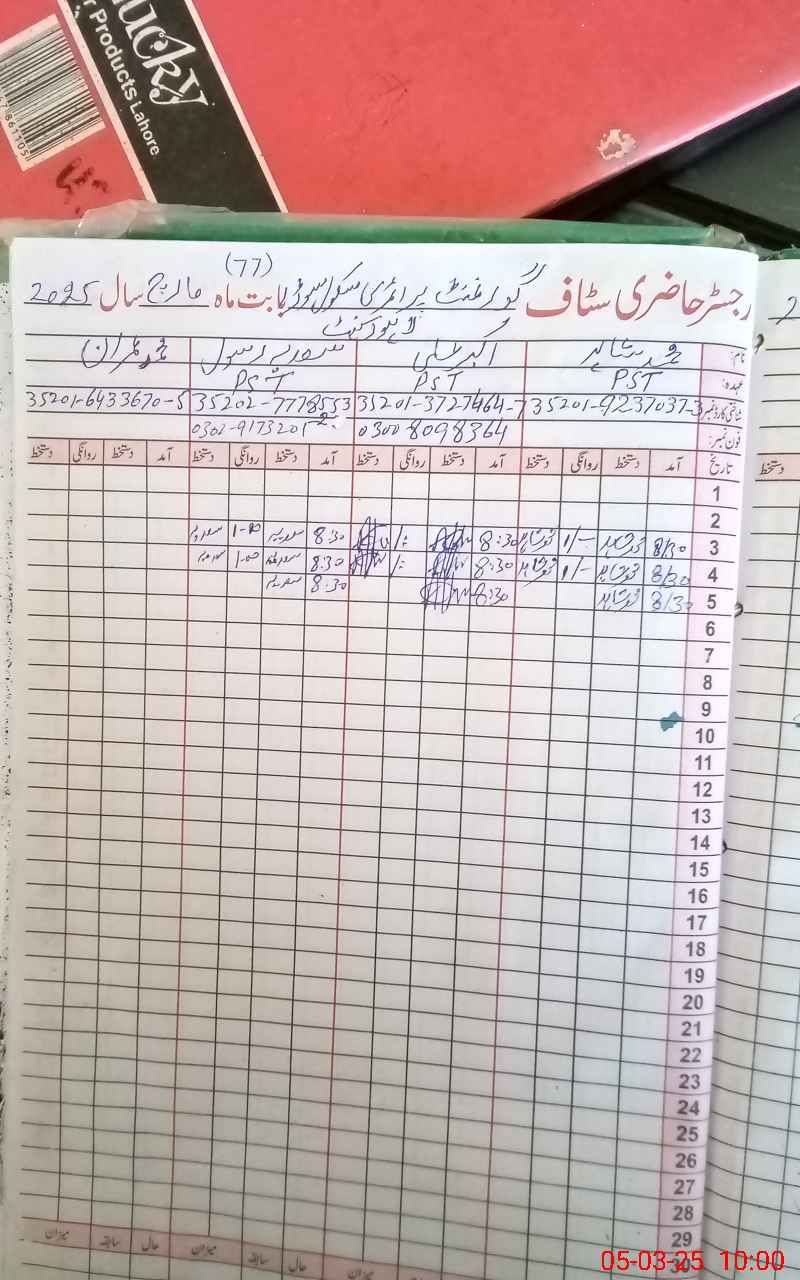 Lucky
r Products Lahore
(77)
رجسٹر حاضری سٹاف گورنمنٹ پرائمری سکول بابت ماہ مارچ سال 2025
لاہور کینٹ
نام: محمد شاہد اکبر علی سعدیہ رسول محمد عمران
عہدہ: PST PST PST
شناختی کارڈ نمبر 35201-9237037-3 35201-3727464-7 35202-7778553 35201-6433670-5
فون نمبر: 0300 8098364
تاریخ آمد دستخط روانگی دستخط آمد دستخط روانگی دستخط آمد دستخط روانگی دستخط آمد دستخط روانگی دستخط
1
2
3 8/30 محمد شاہد 1/- محمد شاہد 8:30 8:30 سعدیہ 1-00 سعدیہ
4 8/30 محمد شاہد 1/- محمد شاہد 8:30 8:30 سعدیہ 1-00 سعدیہ
5 8/30 محمد شاہد 8:30 8:30 سعدیہ
6
7
8
9
10
11
12
13
14
15
16
17
18
19
20
21
22
23
24
25
26
27
28
29
30
میزان سابقہ حال میزان سابقہ حال میزان
05-03-25 10:00